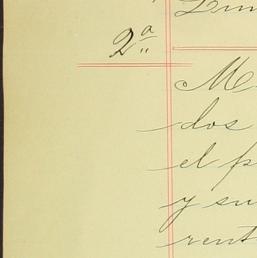 2ª
dos
el p
y su
rent